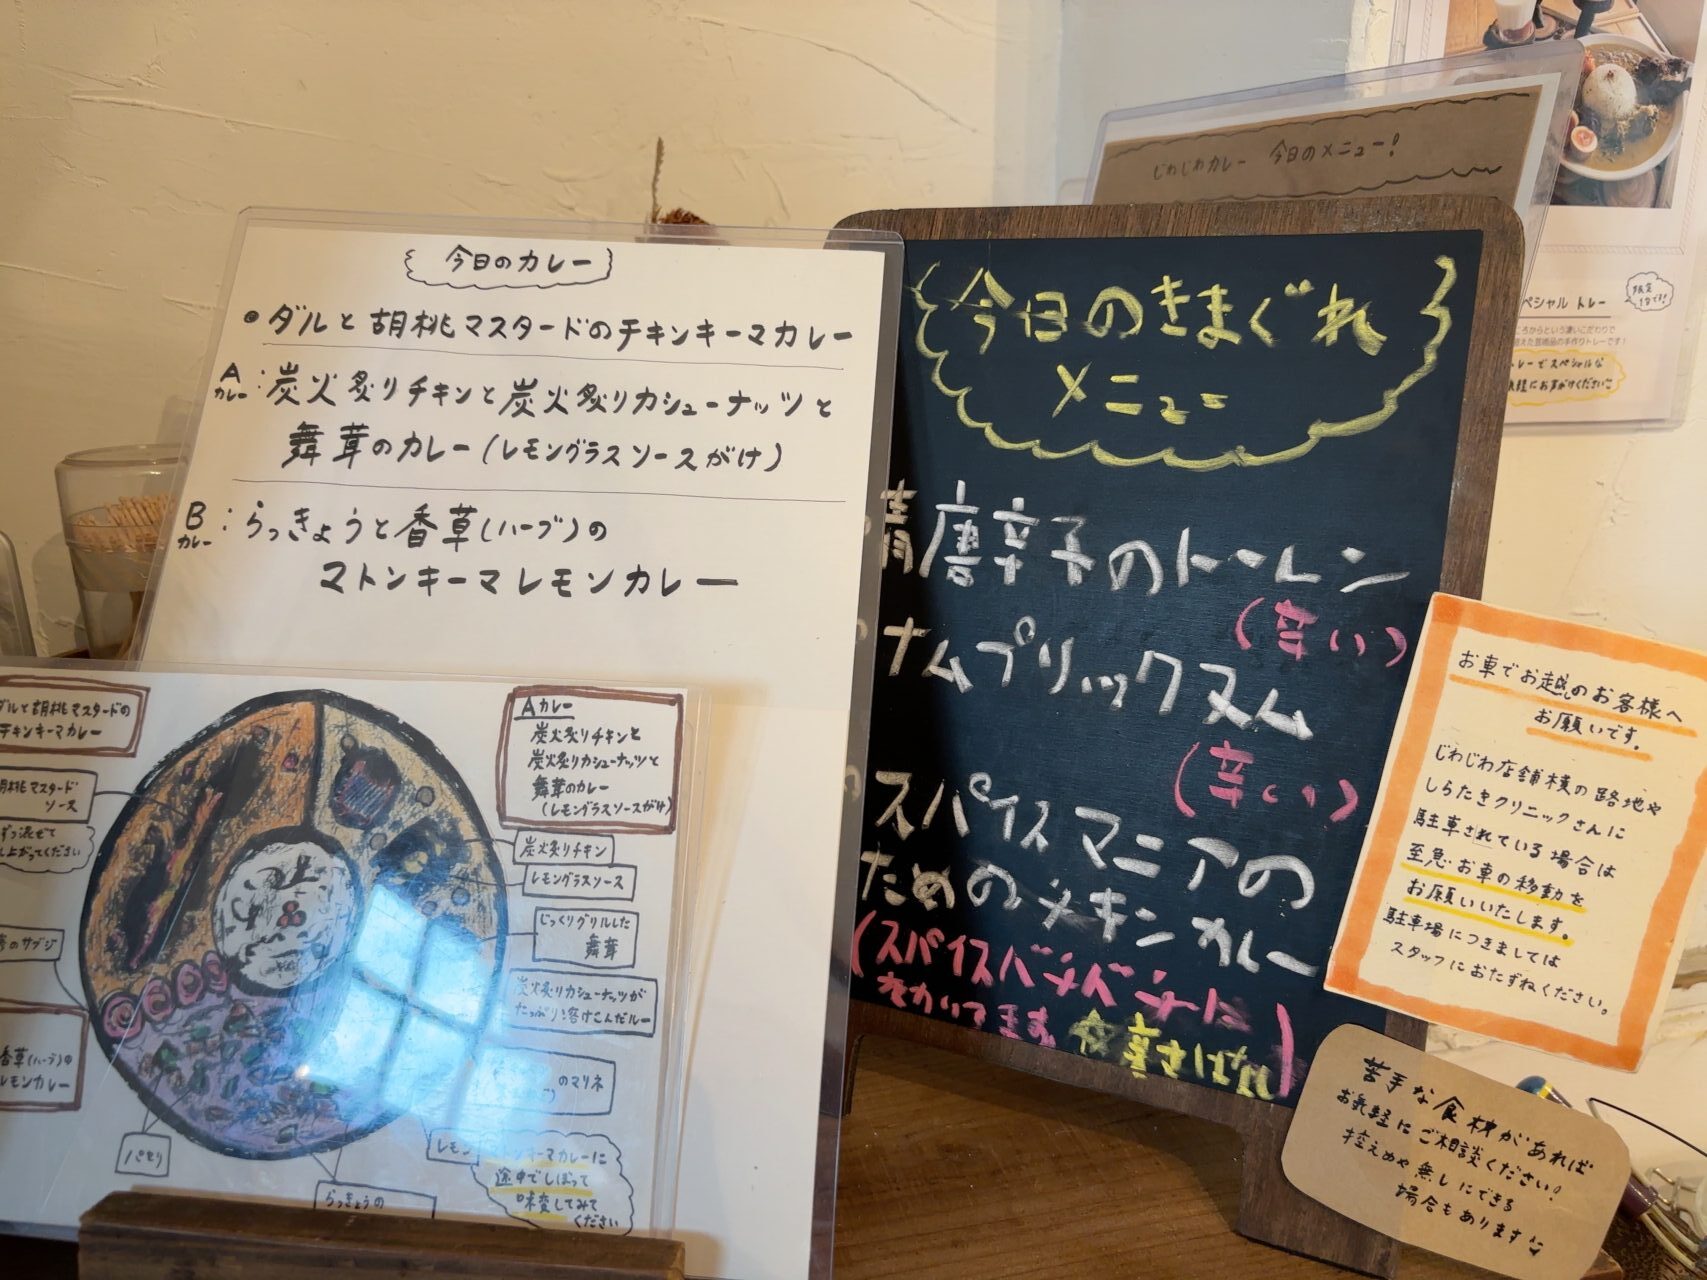 今日のカレー
●ダルと胡桃マスタードのチキンキーマカレー
Aカレー:炭火炙りチキンと炭火炙りカシューナッツと
舞茸のカレー(レモングラスソースがけ)
Bカレー:らっきょうと香草(ハーブ)の
マトンキーマレモンカレー
ダルと胡桃マスタードの
チキンキーマカレー
胡桃マスタード
ソース
ずつ混ぜて
し上がってください
のサブジ
香草(ハーブ)の
レモンカレー
パセリ
らっきょうの
Aカレー
炭火炙りチキンと
炭火炙りカシューナッツと
舞茸のカレー
(レモングラスソースがけ)
炭火炙りチキン
レモングラスソース
じっくりグリルした
舞茸
炭火炙りカシューナッツが
たっぷり溶けこんだルー
のマリネ
レモン
マトンキーマカレーに
途中でしぼって
味変してみて
ください
じわじわカレー 今日のメニュー!
今日のきまぐれ
メニュー
青唐辛子のトーレン
(辛い)
ナムプリックヌム
(辛い)
スパイスマニアの
ためのチキンカレー
(スパイスバチバチに
きかいてます。
ペシャル トレー
ころからという濃いこだわりで
トレーでスペシャルな
軽にお声がけください
お車でお越しのお客様へ
お願いです。
じわじわ店舗横の路地や
しらたきクリニックさんに
駐車されている場合は
至急お車の移動を
お願いいたします。
駐車場につきましては
スタッフにおたずねください。
苦手な食材があれば
お気軽にご相談ください!
控えめや無しにできる
場合もあります